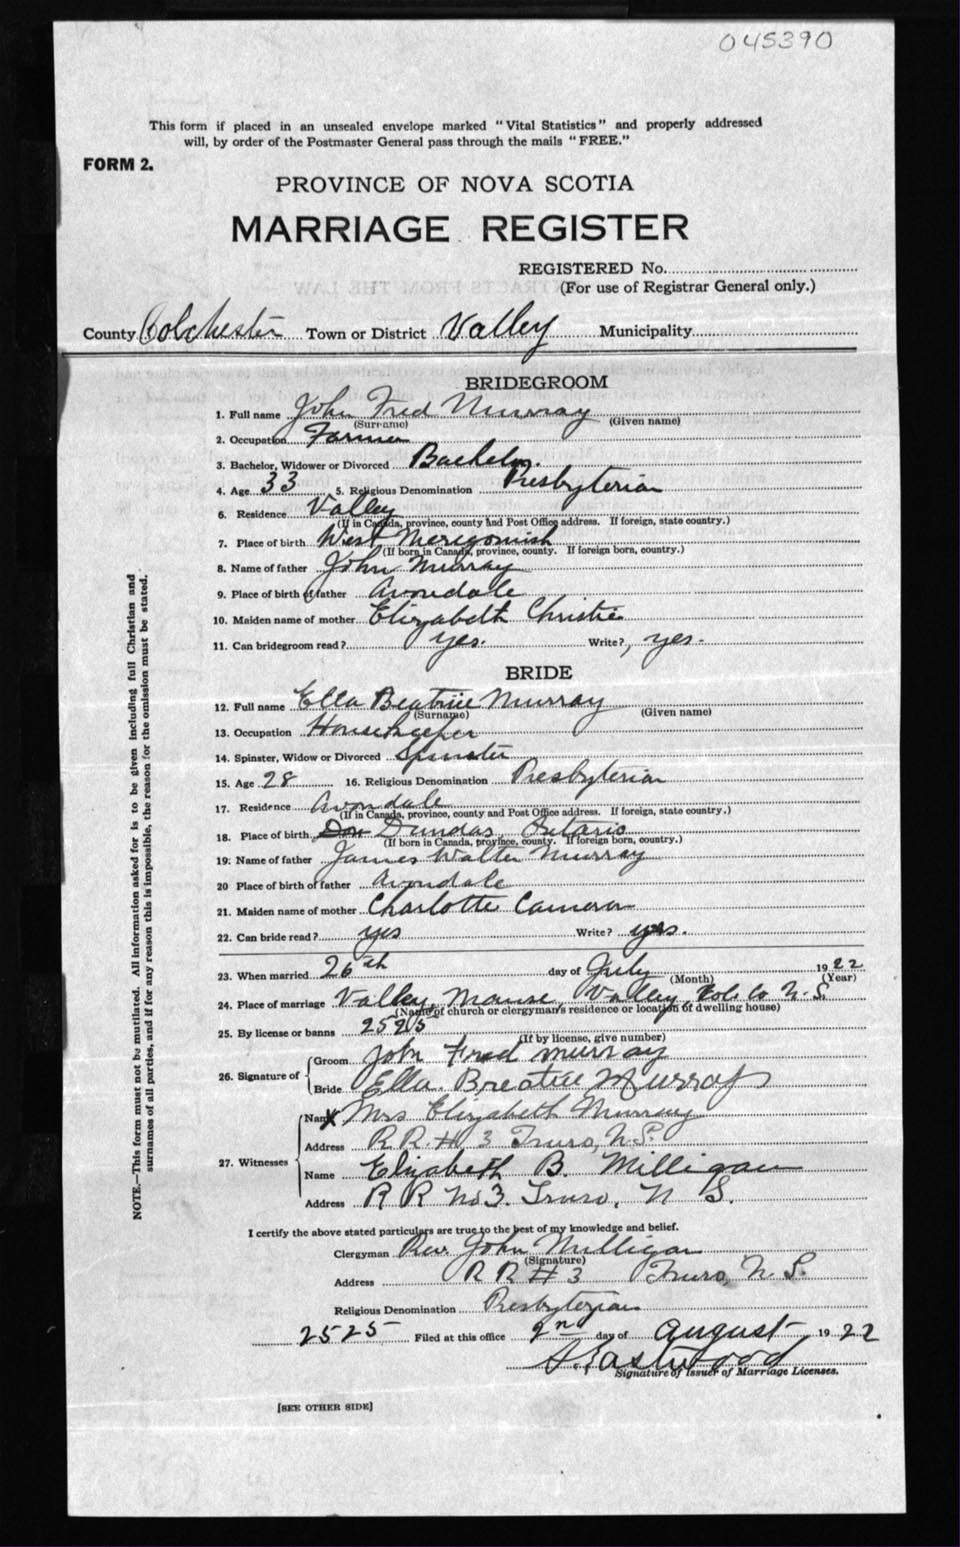 045390
This form if placed in an unsealed envelope marked "Vital Statistics" and properly addressed
will, by order of the Postmaster General pass through the mails "FREE."
FORM 2.
PROVINCE OF NOVA SCOTIA
MARRIAGE REGISTER
REGISTERED No.
(For use of Registrar General only.)
County Colchester Town or District Valley Municipality
BRIDEGROOM
1. Full name John Fred Murray
(Surname) (Given name)
2. Occupation Farmer
3. Bachelor, Widower or Divorced Bachelor.
4. Age 33 5. Religious Denomination Presbyterian
6. Residence Valley
(If in Canada, province, county and Post Office address. If foreign, state country.)
7. Place of birth West Merigomish
(If born in Canada, province, county. If foreign born, country.)
8. Name of father John Murray
9. Place of birth of father Avondale
10. Maiden name of mother Elizabeth Christie
11. Can bridegroom read? yes. Write? yes-
BRIDE
12. Full name Ella Beatrice Murray
(Surname) (Given name)
13. Occupation Housekeeper
14. Spinster, Widow or Divorced Spinster
15. Age 28 16. Religious Denomination Presbyterian
17. Residence Avondale
(If in Canada, province, county and Post Office address. If foreign, state country.)
18. Place of birth Dundas, Ontario
(If born in Canada, province, county. If foreign born, country.)
19. Name of father James Walter Murray
20 Place of birth of father Avondale
21. Maiden name of mother Charlotte Cameron
22. Can bride read? yes Write? yes.
23. When married 26th day of July 1922
(Month) (Year)
24. Place of marriage Valley Manse, Valley, Col. Co N.S.
(Name of church or clergyman's residence or location of dwelling house)
25. By license or banns 2525
(If by license, give number)
26. Signature of
Groom John Fred Murray
Bride Ella Breatice Murray
27. Witnesses
Name Mrs Elizabeth Murray
Address R R. # 3 Truro, N.S.
Name Elizabeth B. Milligan
Address R R No 3. Truro, N S.
I certify the above stated particulars are true to the best of my knowledge and belief.
Clergyman Rev. John Milligan
(Signature)
Address R R # 3 Truro, N.S.
Religious Denomination Presbyterian
2525 Filed at this office 2nd day of August 1922
Eastwood
Signature of Issuer of Marriage Licenses.
[SEE OTHER SIDE]
NOTE.—This form must not be mutilated. All information asked for is to be given including full Christian and
surnames of all parties, and if for any reason this is impossible, the reason for the omission must be stated.